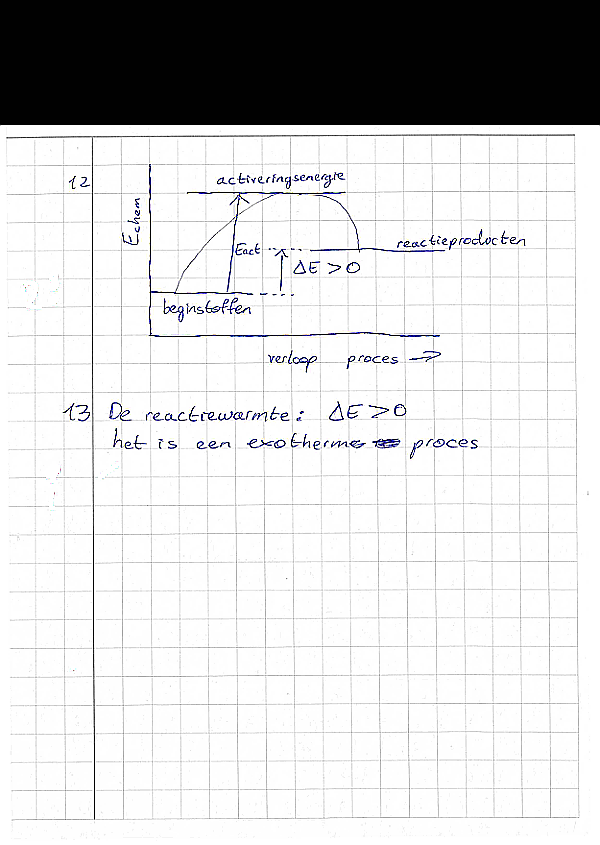 12
activeringsenergie
Echem
Eact
reactieproducten
ΔE > 0
beginstoffen
verloop proces →
13 De reactiewarmte: ΔE > 0
het is een exotherme proces